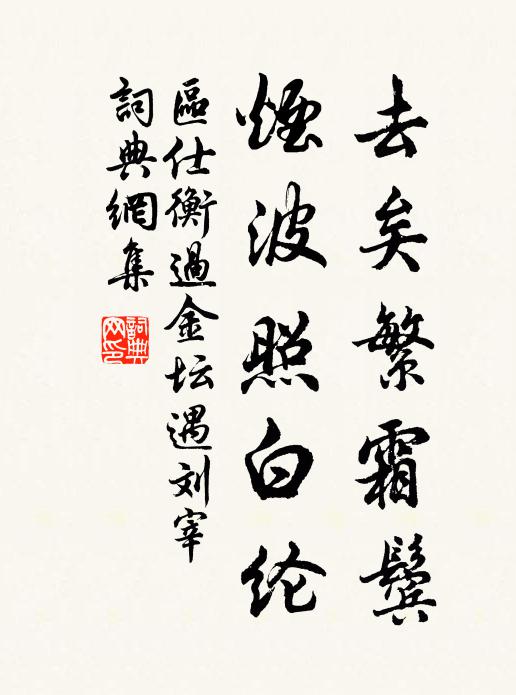 去矣繁霜鬓
煙波照白纶
區仕衡過金坛遇刘宰
詞典網集
詞典网印